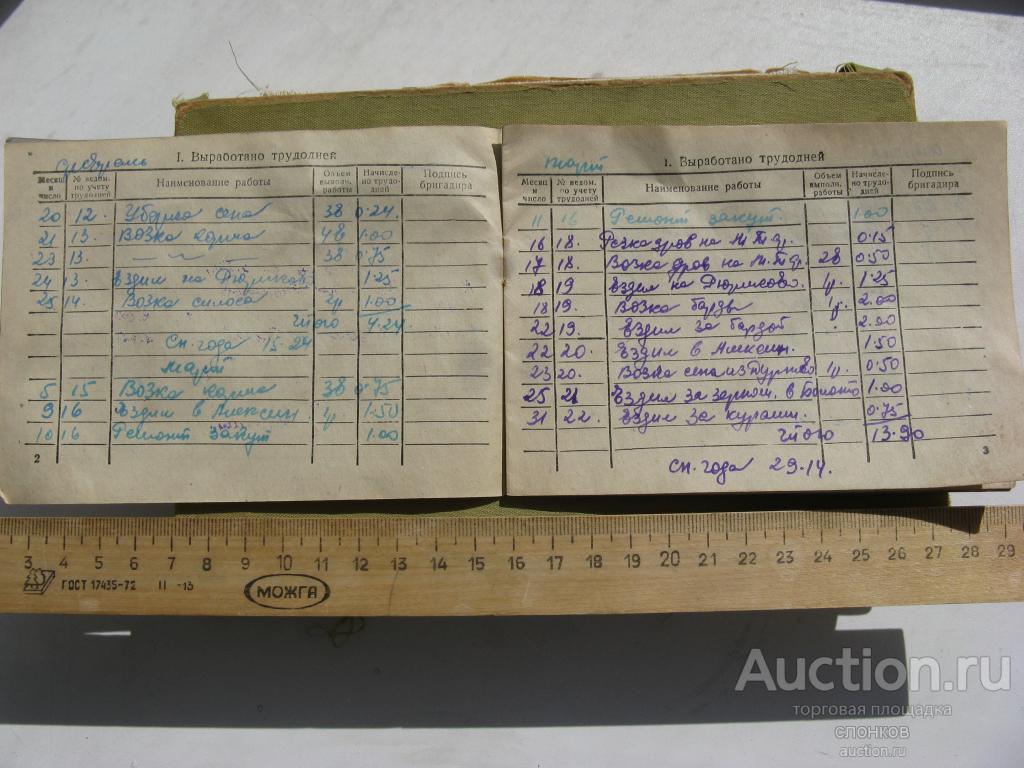 февраль
I. Выработано трудодней
Месяц и число
№ ведом. по учету трудодней
Наименование работы
Объем выполн. работы
Начислено трудодней
Подпись бригадира
20 12. Уборка сена 38 0.24.
21 13. Возка корма 48 1.00
23 13. — " — 38 0.75
24 13. Ездил на 1.25
25 14. Возка силоса 1.00
Итого 4.24
Сн. года 15-24
Март
5 15 Возка корма 38 0.75
9 16 Ездил в Алексин. 1.50
10 16 Ремонт закут 1.00
2
март
I. Выработано трудодней
Месяц и число
№ ведом. по учету трудодней
Наименование работы
Объем выполн. работы
Начислено трудодней
Подпись бригадира
11 16 Ремонт закут. 1.00
16 18. Резка дров на М.Т.Ф. 0.15
17 18. Возка дров на М.Т.Ф. 28 0.50
18 19 Ездил на 1.25
18 19. Возка барды 2.00
22 19. Ездил за бардой 2.00
22 20. Ездил в Алексин. 1.50
23 20. Возка сена из 0.50
25 21 Ездил за зерном. в 1.00
31 22. Ездил за курами. 0.75
Итого 13.90
Сн. года 29.14.
3
3 4 5 6 7 8 9 10 11 12 13 14 15 16 17 18 19 20 21 22 23 24 25 26 27 28 29
ГОСТ 17435-72 II -13
МОЖГА
Auction.ru
торговая площадка
СЛОНКОВ
auction.ru